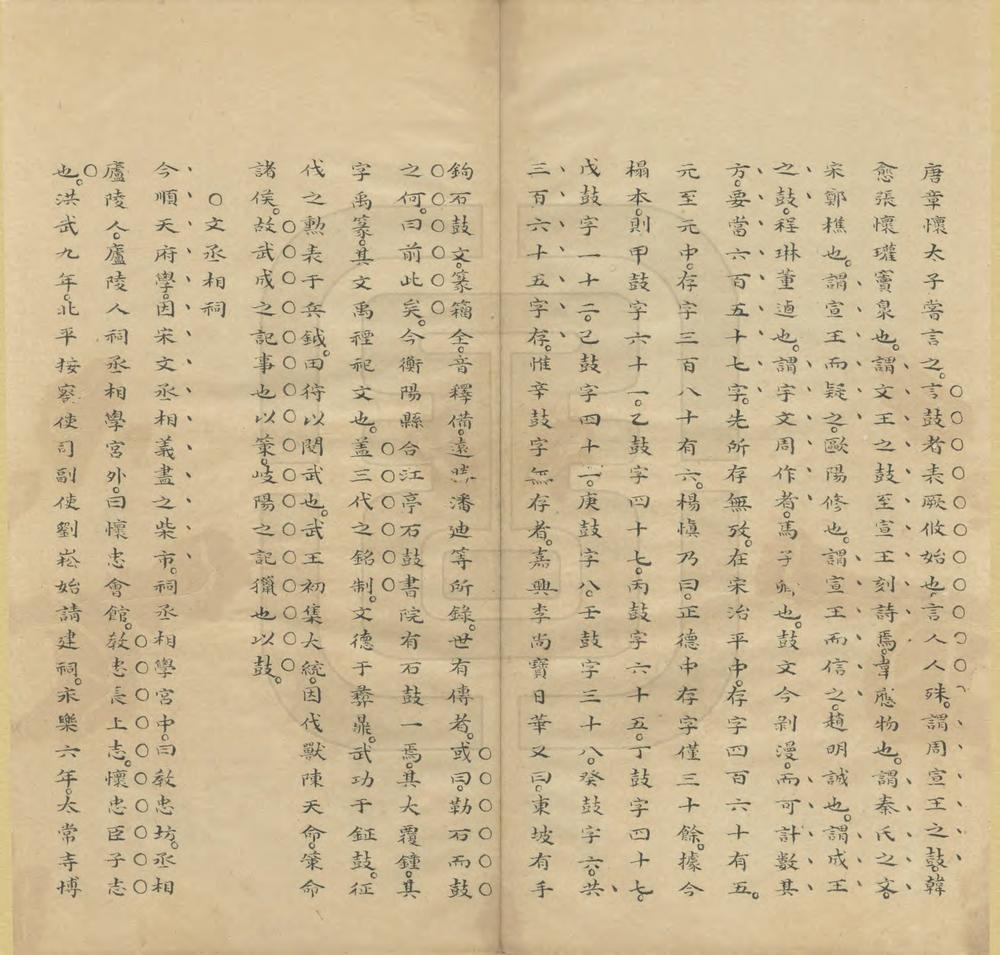 唐章懷太子嘗言之。言鼓者表厥攸始也。言人人殊。謂周宣王之鼓。韓
愈張懷瓘竇臮也。謂文王之鼓至宣王刻詩焉。韋應物也。謂秦氏之文。
宋鄭樵也。謂宣王而疑之。歐陽修也。謂宣王而信之。趙明誠也。謂成王
之鼓。程琳董逌也。謂宇文周作者。馬子卿也。鼓文今剥漫。而可計數其
方。要當六百五十七字。先所存無攷。在宋治平中。存字四百六十有五。
元至元中。存字三百八十有六。楊慎乃曰。正德中存字僅三十餘。據今
榻本。則甲鼓字六十一。乙鼓字四十七。丙鼓字六十五。丁鼓字四十七。
戊鼓字一十二。己鼓字四十一。庚鼓字八。壬鼓字三十八。癸鼓字六。共
三百六十五字存。惟辛鼓字無存者。嘉興李尚寶日華又曰。東坡有手
鉤石鼓文。篆籀全。音釋備。遠勝潘迪等所錄。世有傳者。或曰。勒石而鼓
之何。曰前此矣。今衡陽縣合江亭石鼓書院有石鼓一焉。其大覆鍾。其
字禹篆。其文禹禋祀文也。蓋三代之銘制。文德于彝鼎。武功于鉦鼓。征
伐之勲表于兵鉞。田狩以閱武也。武王初集大統。因伐獸陳天命。策命
諸侯。故武成之記事也以策。岐陽之記獵也以鼓。
○文丞相祠
今順天府學。因宋文丞相義盡之柴市。祠丞相學宮中。曰教忠坊。丞相
廬陵人。廬陵人祠丞相學宮外。曰懷忠會館。教忠長上志。懷忠臣子志
也。洪武九年。北平按察使司副使劉崧始請建祠。永樂六年。太常寺博